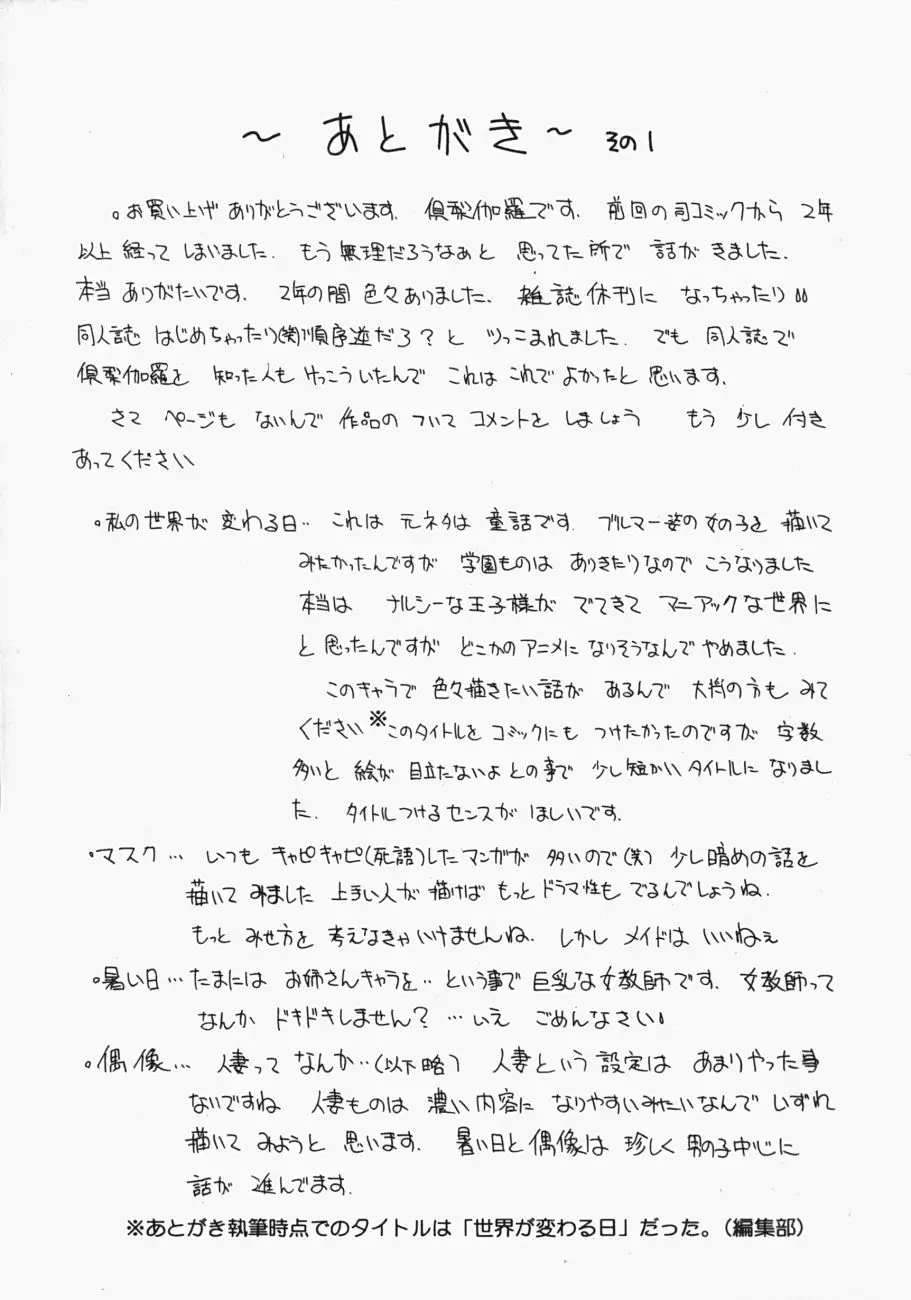 ～あとがき～ その1
。お買い上げ ありがとうございます. 倶梨伽羅です. 前回の司コミックから 2年
以上 経って しまいました. もう無理だろうなぁと 思ってた所で 話が きました.
本当 ありがたいです. 2年の間 色々ありました. 雑誌休刊に なっちゃったり
同人誌 はじめちゃったり(笑)順序逆だろ?と ツッこまれました. でも 同人誌で
倶梨伽羅を 知った人も けっこういたんで これは これで よかったと 思います.
さて ページも ないんで 作品の ついて コメントを しましょう もう 少し 付き
あってください
。私の世界が 変わる日‥ これは 元ネタは 童話です. ブルマー姿の女の子を 描いて
みたかったんですが 学園ものは ありきたりなので こうなりました
本当は ナルシーな王子様が でてきて マニアックな世界に
と 思ったんですが どこかのアニメに なりそうなんで やめました.
このキャラで 色々描きたい話が あるんで 大判の方も みて
ください※このタイトルを コミックにも つけたかったのですが 字数
多いと 絵が 目立たないよ との事で 少し短かいタイトルに なりまし
た. タイトルつけるセンスが ほしいです.
・マスク… いつも キャピキャピ(死語)したマンガが 多いので(笑) 少し暗めの話を
描いて みました 上手い人が 描けば もっとドラマ性も でるんでしょうね.
もっと みせ方を 考えなきゃいけませんね. しかし メイドは いいねぇ
。暑い日… たまには お姉さんキャラを‥ という事で 巨乳な女教師です. 女教師って
なんか ドキドキしません? …いえ ごめんなさい!
。偶像… 人妻って なんか‥(以下略) 人妻という設定は あまりやった事
ないですね 人妻ものは 濃い内容に なりやすいみたいなんで いずれ
描いて みようと 思います. 暑い日と偶像は 珍しく 男の子中心に
話が 進んでます.
※あとがき執筆時点でのタイトルは「世界が変わる日」だった。(編集部)